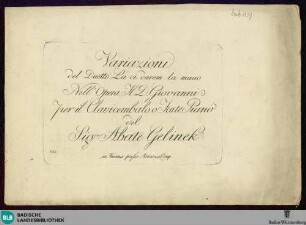 Variazioni
del Duetto Là ci darem la mano
Nell' Opera Il D. Giovanni
per il Clavicembalo o Forte Piano
del
Sigr Abate Gelinek
in Vienna presso
BLB
BADISCHE
LANDESBIBLIOTHEK
Baden-Württemberg